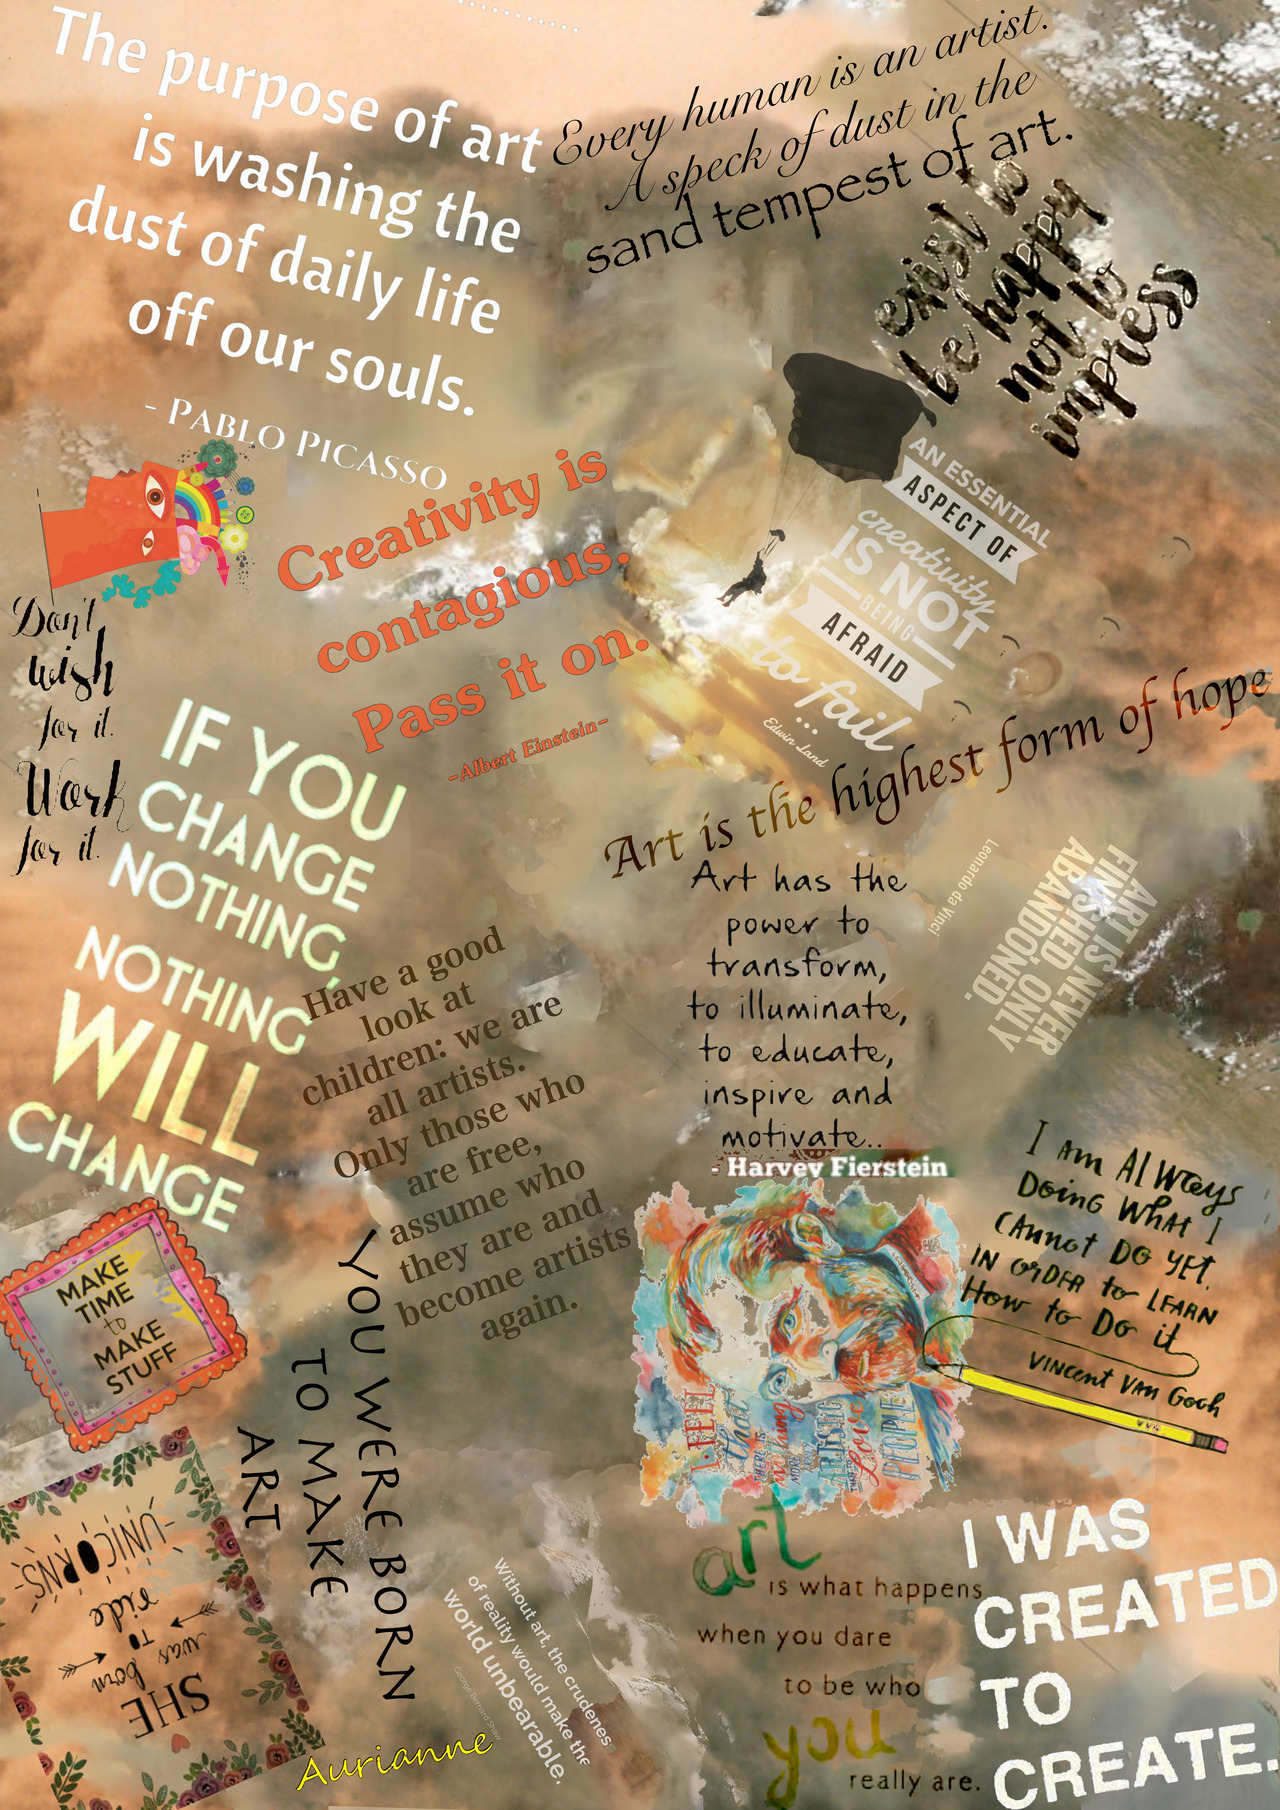 The purpose of art
is washing the
dust of daily life
off our souls.
- PABLO PICASSO
Every human is an artist.
A speck of dust in the
sand tempest of art.
exist to
be happy
not to
impress
Creativity is
contagious.
Pass it on.
-Albert Einstein-
AN ESSENTIAL
ASPECT OF
creativity
IS NOT
BEING
AFRAID
to fail
...
Edwin Land
Don't
wish
for it.
Work
for it.
IF YOU
CHANGE
NOTHING,
NOTHING
WILL
CHANGE
Art is the highest form of hope
Art has the
power to
transform,
to illuminate,
to educate,
inspire and
motivate..
- Harvey Fierstein
ART IS NEVER
FINISHED ONLY
ABANDONED.
Leonardo da Vinci
Have a good
look at
children: we are
all artists.
Only those who
are free,
assume who
they are and
become artists
again.
I AM AlWays
Doing WhAt I
CAnnot DO yEt.
IN OrDER to LEARN
How to Do it
VINCent VAn GoGh
MAKE
TIME
to
MAKE
STUFF
YOU WERE BORN
TO MAKE
ART
I FEEL
that
THERE IS
nothing
MORE TRULY
ARTISTIC
THAN TO
Love
PEOPLE
SHE
was born
TO
ride
-UNICORNS-
Without art, the crudeness
of reality would make the
world unbearable.
George Bernard Shaw
Aurianne
art
is what happens
when you dare
to be who
you
really are.
I WAS
CREATED
TO
CREATE.